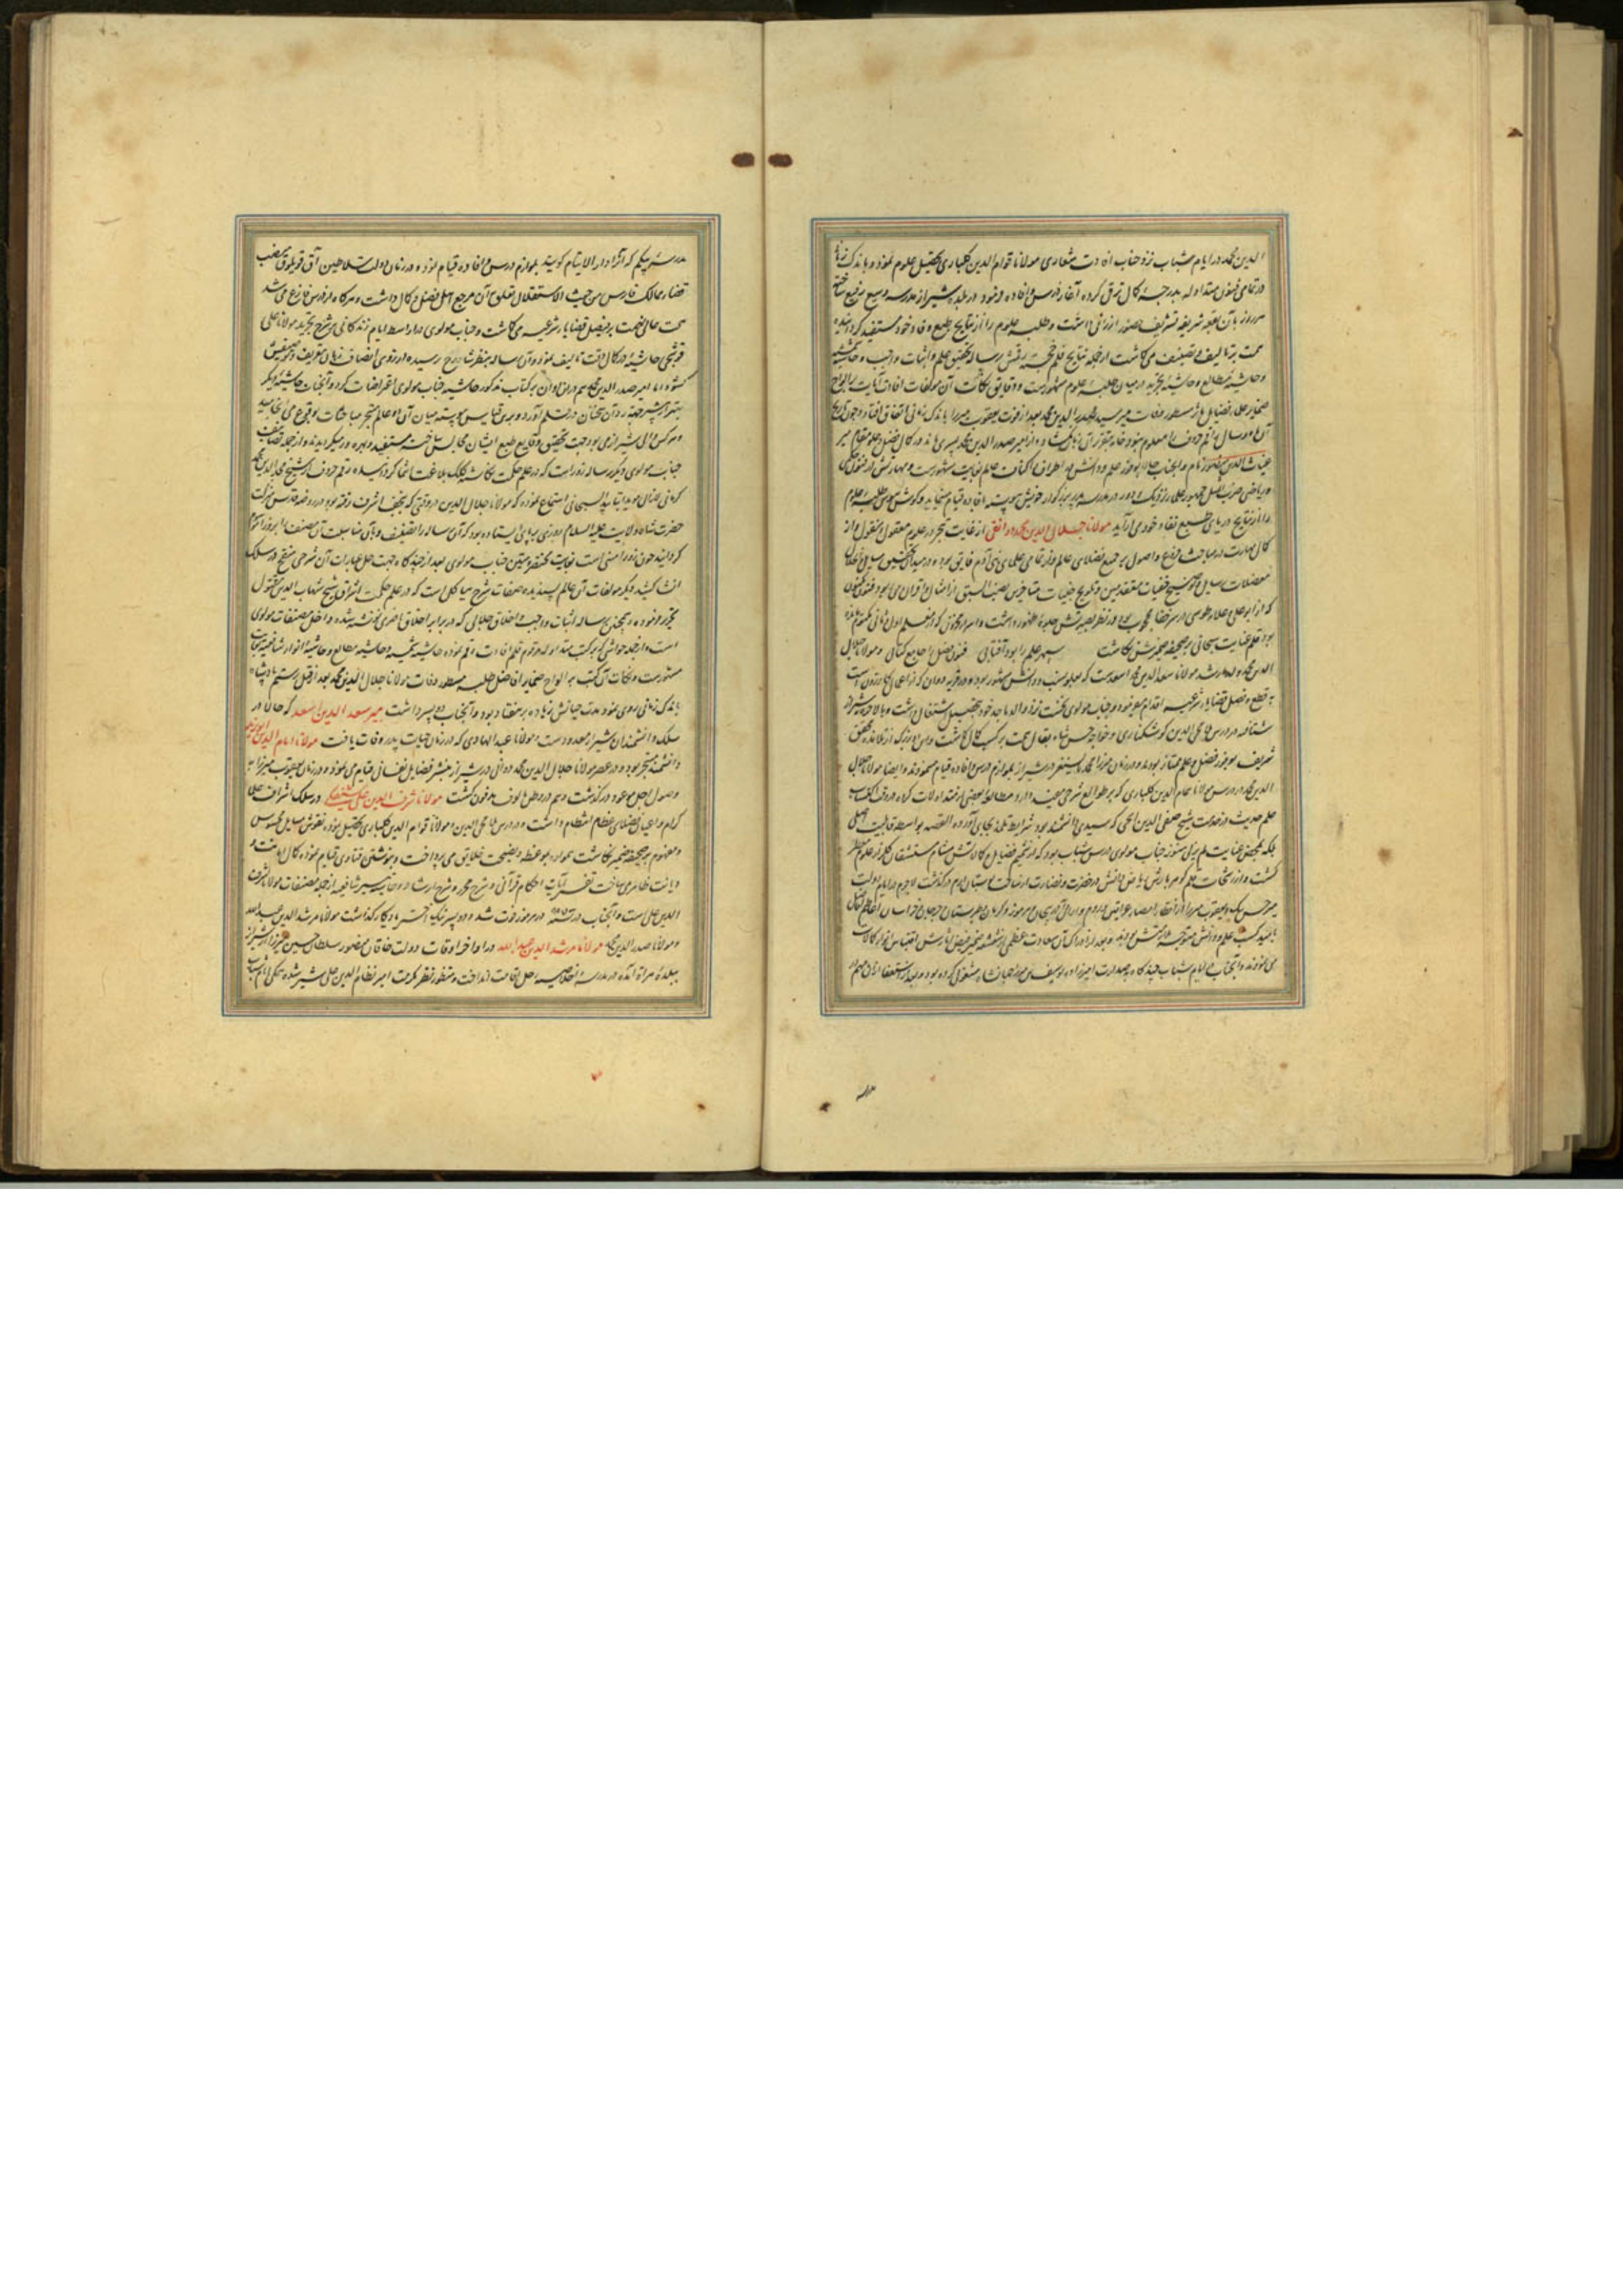 الدین محمد در ایام شباب نزد جناب افادت شعاری مولانا قوام الدین کلباری تحصیل علوم نموده و باندک زمانی
در تمامی فنون متداوله بدرجهٔ کمال ترقی کرده آغاز درس و افاده فرمود و در بلده شیراز مدرسه وسیع رفیع ساخته
هر روز بآن بقعه شریفه تشریف حضور ارزانی داشت و طلبه علوم را از نتایج طبع وقاد خود مستفید گردانیده
همت بر تالیف و تصنیف می‌گماشت از جمله نتایج قلم خجسته رقمش رساله تحقیق علم و اثبات واجب و حاشیه شمسیه
و حاشیه مطالع و حاشیه تجرید در میان طلبه علوم مشهورست و دقایق و نکات آن مولفات افادت آیات بر الواح
ضمایر علماء فضایل مآثر مسطور وفات میر سید صدر الدین محمد بعد از فوت یعقوب میرزا باندک زمانی اتفاق افتاد و چون تاریخ
آن ماه و سال راقم حروف را معلوم نبود خامه بتقریر آن زبان نگشاد و از امیر صدر الدین محمد پسری ماند در کمال فضل و علو مقام میر
غیاث الدین منصور نام و آنجناب حالا بوفور علم و دانش در اطراف و اکناف عالم بغایت مشهورست و مهارتش در فنون حکمی
و ریاضی ضرب المثل جمهور علماء نزدیک و دور در مدرسه پدر بزرگوار خویش پیوسته بافاده قیام می‌نماید و گوش هوش طلبه علوم
را از نتایج دریای طبیع نقاد خود می‌آراید مولانا جلال الدین محمد دوانی از غایت تبحر در علوم معقول و منقول و از
کمال مهارت در مباحث فروع و اصول بر جمیع فضلای عالم و از تمامی علمای بنی آدم فایق بود و در میدان تحقیق مسایل و حل
معضلات مسایل و توضیح خفیات متقدمین و تلویح خبیات متاخرین قصب السبق از امثال و اقران می‌ربود فنون مکنون
که از ابو علی و علامه طوسی در ستر خفا محجوب بود در نظر بصیرتش جلوهٔ ظهور داشت و اسرار مخزون که از معلم اول و ثانی مکتوم مانده
بود قلم عنایت سبحانی بر صحیفه ضمیرش نگاشت سپهر علم را بود آفتابی فنون فضل را جامع کتابی و مولانا جلال
الدین محمد ولد ارشد مولانا سعد الدین محمد اسعد است که بعلو نسب و دانش مشهور بود و در قریه دوان که از اعمال کازرون است
بقطع و فصل قضایا شرعیه اقدام می‌نمود و جناب مولوی نخست نزد والد ماجد خود بتحصیل اشتغال داشت و بالاخره بشیراز
شتافته در درس ملا محی الدین کوشکناری و خواجه حسن شاه بقال همت بر کسب کمال گماشت و این دو بزرگ از تلامذه محقق
شریف بوفور فضل و علم ممتاز بودند و در زمان میرزا محمد بایسنغر در شیراز بلوازم درس و افاده قیام می‌نمودند و ایضا مولانا جلال
الدین محمد در درس مولانا همام الدین کلباری که بر طوالع شرحی مفید دارد مطالعه بعضی از متداولات کرده در وقت اکتساب
علم حدیث در خدمت شیخ صفی الدین ایجی که سیدی دانشمند بود شرایط تلمذ بجای آورده القصه بواسطه قابلیت اصلی
بلکه بمحض عنایت لم یزلی هنوز جناب مولوی در سن شباب بود که از شمیم فضایل و کمالاتش مشام مستنشقان گلزار علوم معطر
گشت و از رشحات قلم گوهر بارش ریاض دانش در خضرت و نضارت از ساحت بوستان ارم درگذشت لاجرم در ایام دولت
میر حسن بیک و یعقوب میرزا از اقطار امصار عراقین و روم و اران و آذربیجان و هرموز و کرمان و طبرستان و جرجان و خراسان اعاظم افاضل
بامید کسب علم و دانش متوجه ملازمتش می‌بودند و بعد از ادراک آن سعادت عظمی از رشحه ضمیر فیض آثارش اقتباس انوار کمالات
می‌نمودند و آنجناب در ایام شباب چندگاه به صدارت امیرزاده یوسف بن میرزا جهانشاه مشغولی کرده بود و بعد از استعفا از آن مهم در
مدرسه
مدرسه بیگم که آنرا دار الایتام گویند بلوازم درس و افاده قیام نموده و در زمان دولت سلاطین آق قوینلوق منصب
قضا ممالک فارس من حیث الاستقلال تعلق بآن مرجع اهل فضل و کمال داشت و هرگاه از درس فارغ می‌شد
همت عالی نهمت بر فیصل قضایا شرعیه می‌گماشت و جناب مولوی در اواسط ایام زندگانی بر شرح تجرید مولانا علی
قوشجی حاشیه در کمال دقت تالیف نموده و آن رساله بنظر شارح رسیده از روی انصاف زبان بتعریف و توصیفش
گشود اما امیر صدر الدین محمد هم در آن اوان بر کتاب مذکور حاشیه جناب مولوی اعتراضات کرد و آنجناب حاشیه دیگر
و هر کس از شیراز می‌بود جهت تحقیق وقایع طبع ایشان مجالس ساخته مستفید و بهره‌ور می‌گردیدند و از جمله تصانیف
جناب مولوی دیگر رساله زور است که در علم حکمت نگاشته کلک بلاغت انتما گردانیده راقم حروف از شیخ محی الدین محمد
کرمانی المؤید بتایید السبحانی استماع نموده که مولانا جلال الدین در وقتی که بنجف اشرف رفته بود در روضه مقدس منزلت
حضرت شاه ولایت علیه السلام روزی برپای ایستاده بود که آن رساله را تصنیف و بآن مناسبت آن مصنف را بزورا موسوم
گردانید چون زورا متنی است بغایت مختصر و متین جناب مولوی بعد از چندگاه جهت حل عبارات آن شرحی منقح در سلک
انشا کشید دیگر مولفات آن عالم پسندیده صفات شرح هیاکل است که در علم حکمت اشراق شیخ شهاب الدین مقتول
تحریر فرموده و همچنین رساله اثبات واجب و اخلاق جلالی که در برابر اخلاق ناصری نوشته شده داخل مصنفات مولوی
است و از جمله حواشی که بر کتب متداوله مرقوم قلم افادت رقم نموده حاشیه شمسیه و حاشیه مطالع و حاشیه انوار شافعیه بغایت
مشهورست و نکات آن کتب بر الواح ضمایر افاضل طلبه مسطور وفات مولانا جلال الدین محمد بعد از قتل رستم پادشاه
باندک زمانی روی نمود مدت حیاتش زیاده بر هفتاد بود و آنجناب دو پسر داشت میر سعد الدین اسعد که حالا در
سلک دانشمندان شیراز معدودست و مولانا عبد الهادی که در زمان حیات پدر وفات یافت مولانا امام الدین
دانشمند متبحر بود و در عصر مولانا جلال الدین محمد دوانی در شیراز بنشر فضایل نفسانی قیام می‌نمود و در زمان یعقوب میرزا به
وصول اجل موعود درگذشت و هم در وطن مالوف مدفون گشت مولانا شرف الدین علی شیفتکی در سلک اشراف علماء
کرام و اعیان فضلای عظام انتظام داشت و در درس ملا محی الدین و مولانا قوام الدین کلباری تحصیل نموده نقوش مسایل محسوس
و مفهوم بر صحیفه ضمیر نگاشت همواره بموعظه و نصیحت خلایق می‌پرداخت و بنوشتن فتاوی قیام نموده کمال امانت و
دیانت ظاهر می‌ساخت تفسیر آیات احکام قرآنی و شرح محرر و شرح ارشاد و حاشیه تیسیر شافعیه از جمله مصنفات مولانا شرف
الدین علی است و آنجناب در سنه ۹۰۷ در هرموز فوت شد و دو پسر نیک اختر یادگار گذاشت مولانا مرشد الدین عبدالله
و مولانا صدر الدین محمد مولانا مرشد الدین عبد الله در اواخر اوقات دولت خاقان منصور سلطان حسین میرزا از شیراز
ببلدهٔ هراة آمده در مدرسه اخلاصیه رحل اقامت انداخت و منظور نظر مکرمت امیر نظام الدین علی شیر شده